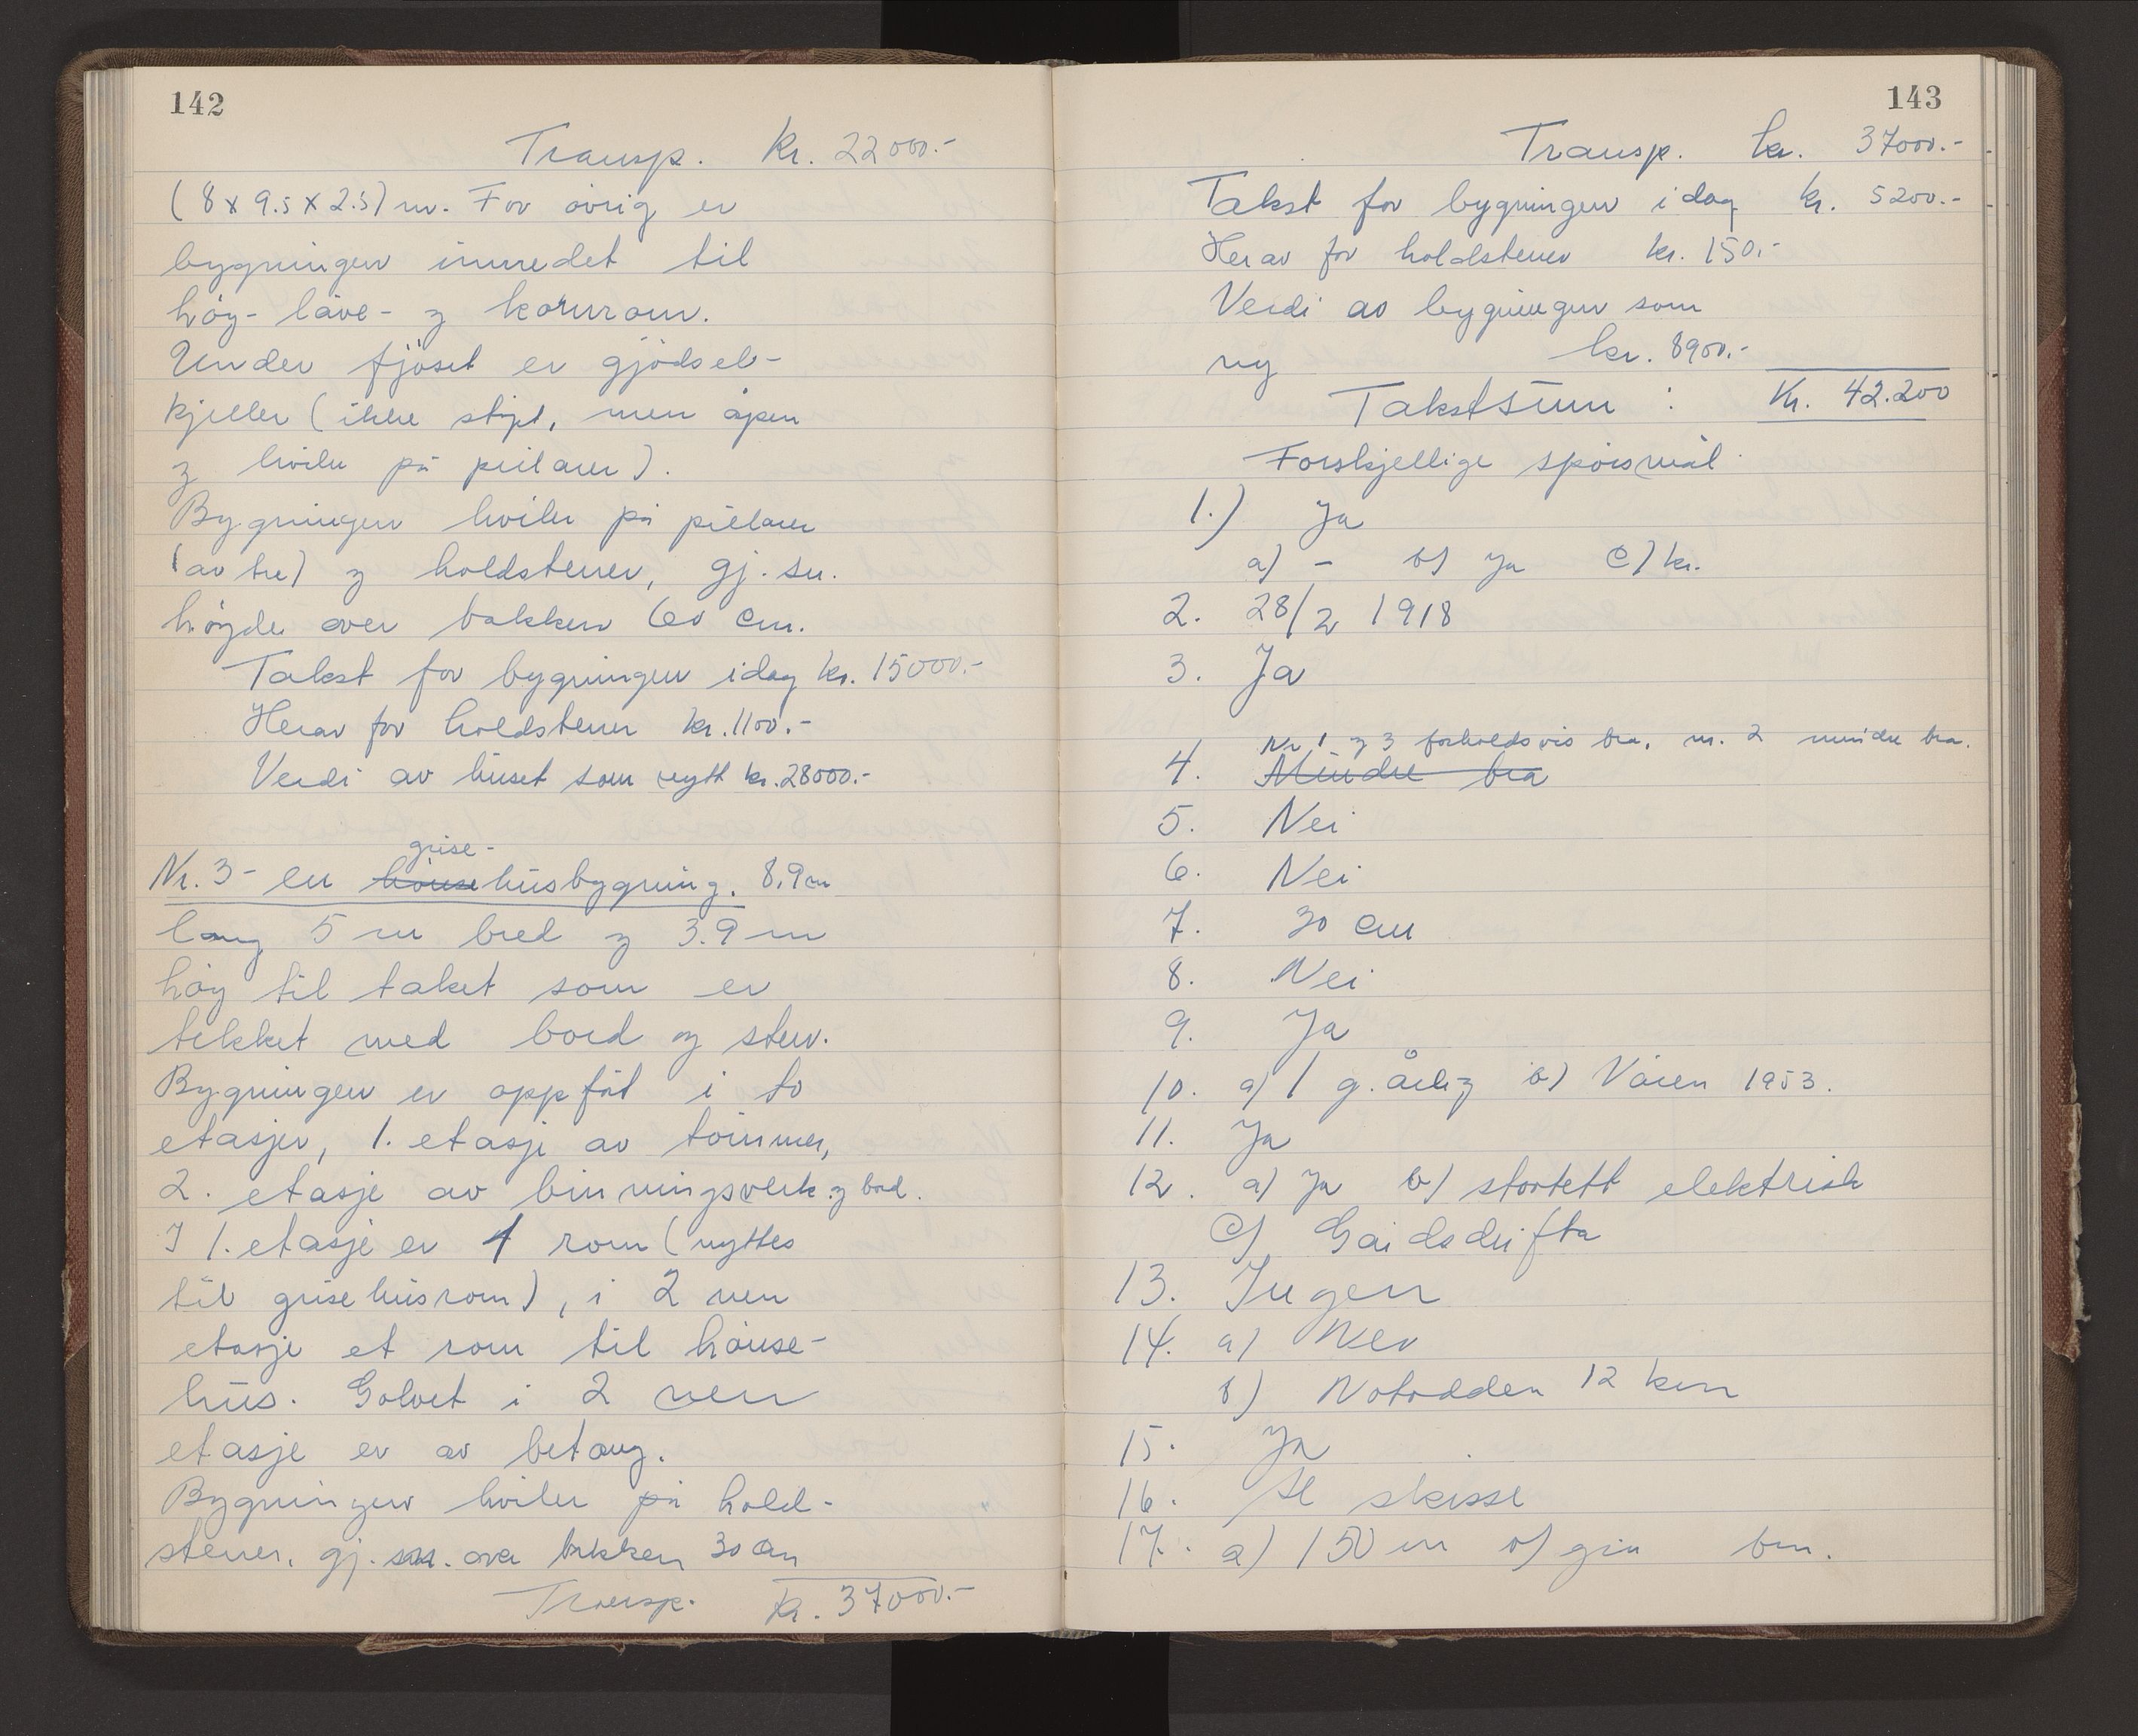 142
Transp. kr. 22000.-
(8 x 9.5 x 2.5) m. For övrig er
bygningen innredet til
höy- låve- og kornrom.
Under fjöset er gjödsel-
kjeller (ikke støpt, men åpen
og hviler på peilarer).
Bygningen hviler på pilarer
(av tre) og holdstener, gj. sn.
höyde over bakken 60 cm.
Takst for bygningen idag kr. 15000.-
Herav for holdstener kr. 1100.-
Verdi av huset som nytt kr. 28000.-
grise-
Nr. 3 - en hönse husbygning. 8,9 m
lang 5 m bred og 3.9 m
höy til taket som er
tekket med bord og sten.
Bygningen er oppført i to
etasjer, 1. etasje av tömmer,
2. etasje av binningsverk og bord.
I 1. etasje er 1 rom (nyttes
til grisehusrom), i 2 nen
etasje et rom til hönse-
hus. Golvet i 2 nen
etasje er av betong.
Bygningen hviler på hold-
stener, gj. sn. over bakken 30 cm
Transp. kr. 37000.-
143
Transp. kr. 37000.-
Takst for bygningen idag kr. 5200.-
Herav for holdstener kr. 150.-
Verdi av bygningen som
ny kr. 8900.-
Takstsum : Kr. 42.200
Forskjellige spörsmål
1.) Ja
a) - b) Ja c) kr.
2. 28/2 1918
3. Ja
Nr 1 og 3 forholdsvis bra, nr. 2 mindre bra.
4. Mindre bra
5. Nei
6. Nei
7. 30 cm
8. Nei
9. Ja
10. a) 1 g. årlig b) Våren 1953.
11. Ja
12. a) Ja b) støvtett elektrisk
c) Gårdsdrifta
13. Ingen
14. a) Nei
b) Notodden 12 km
15. Ja
16. Se skisse
17. a) 150 m b)